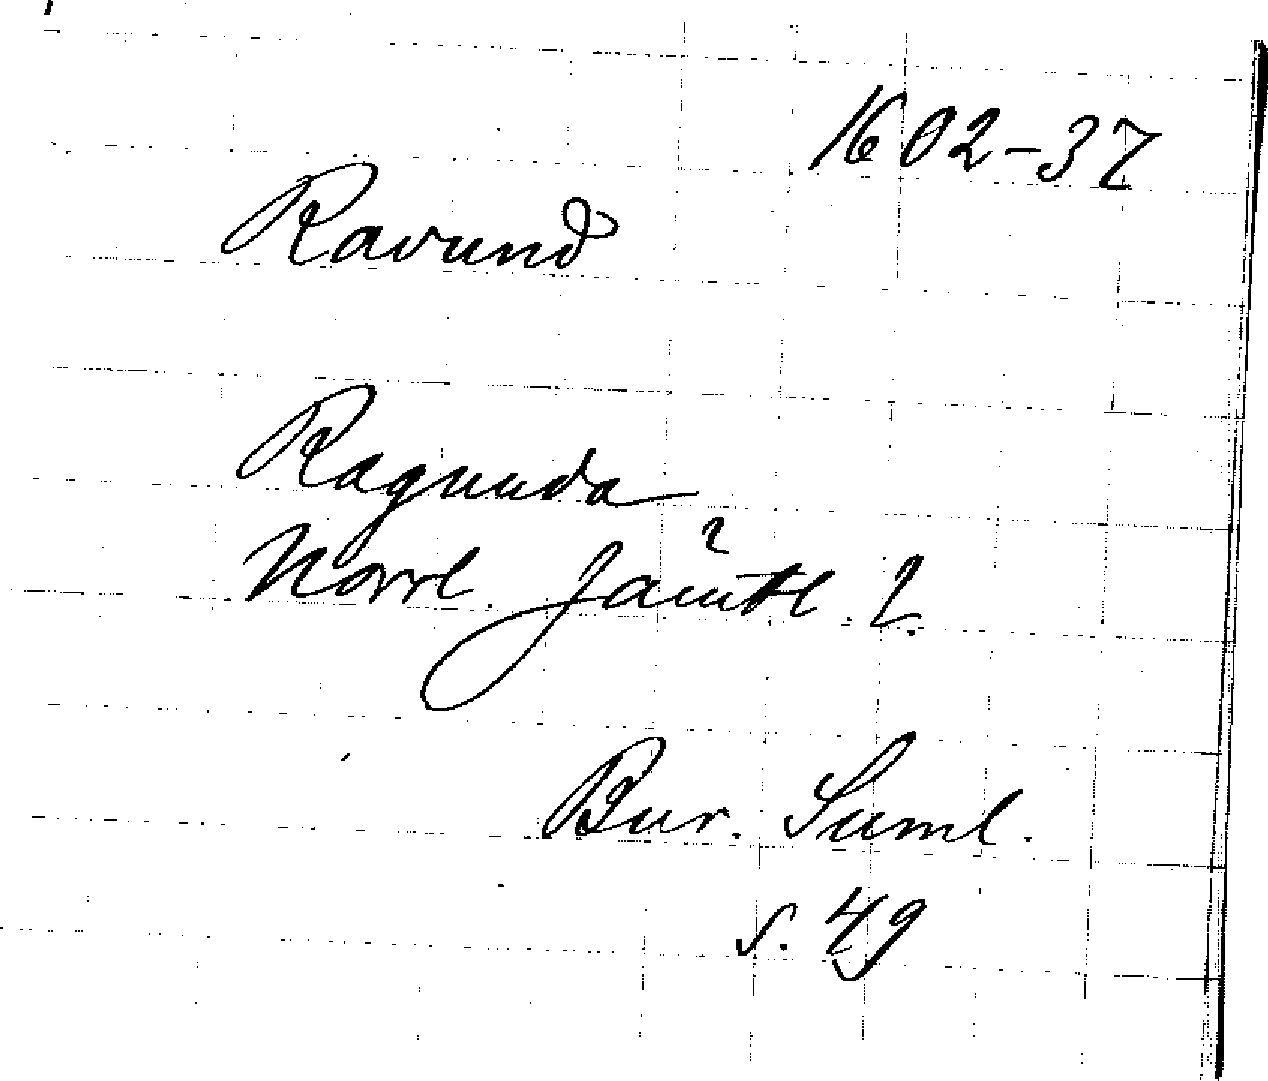 1602-37
Ravund
Ragunda
Norrl. Jämtl. L.
Bur. Suml.
s. 49